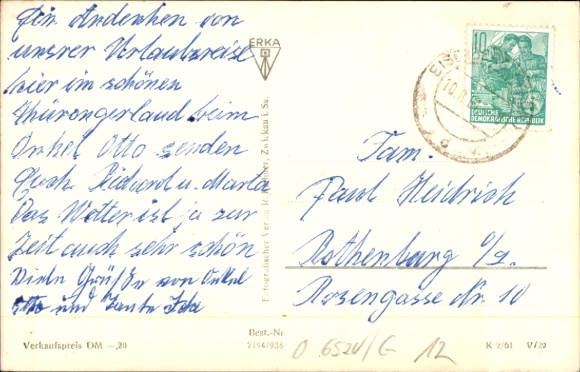 Ein Andenken von
unsrer Urlaubsreise
hier im schönen
Thüringerland beim
Onkel Otto senden
Euch Richard u. Marta
Das Wetter ist ja zur
Zeit auch sehr schön
Viele Grüße von Onkel
Otto und Tante Ida
ERKA
Fotografischer Verlag R. Zwickau i. Sa.
10
DEUTSCHE
DEMOKRATISCHE REPUBLIK
Fam.
Paul Heidrich
Rothenburg O/L.
Rosengasse Nr. 10
Verkaufspreis DM —,20
Best.-Nr
2194/936
K 2/61 V/29
12